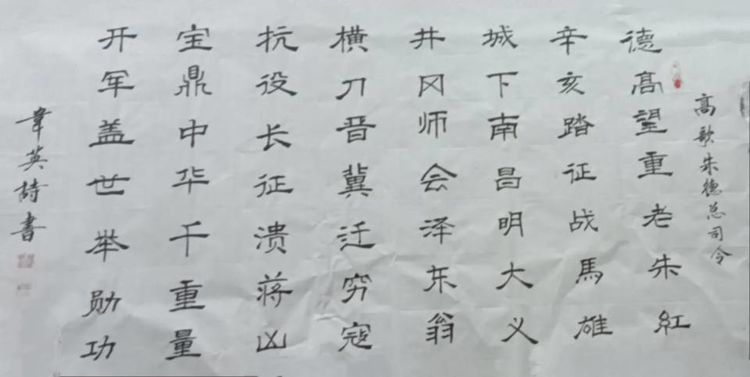 高歌朱德总司令
德高望重老朱红
辛亥踏征战馬雄
城下南昌明大义
井冈师会泽东翁
横刀晋冀迁穷寇
抗役长征溃蒋凶
宝鼎中华千重量
开军盖世举勋功
韋英詩書